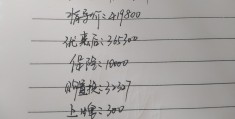 指导价:419800
优惠后:365300
保险:10000
购置税:32307
上牌:300